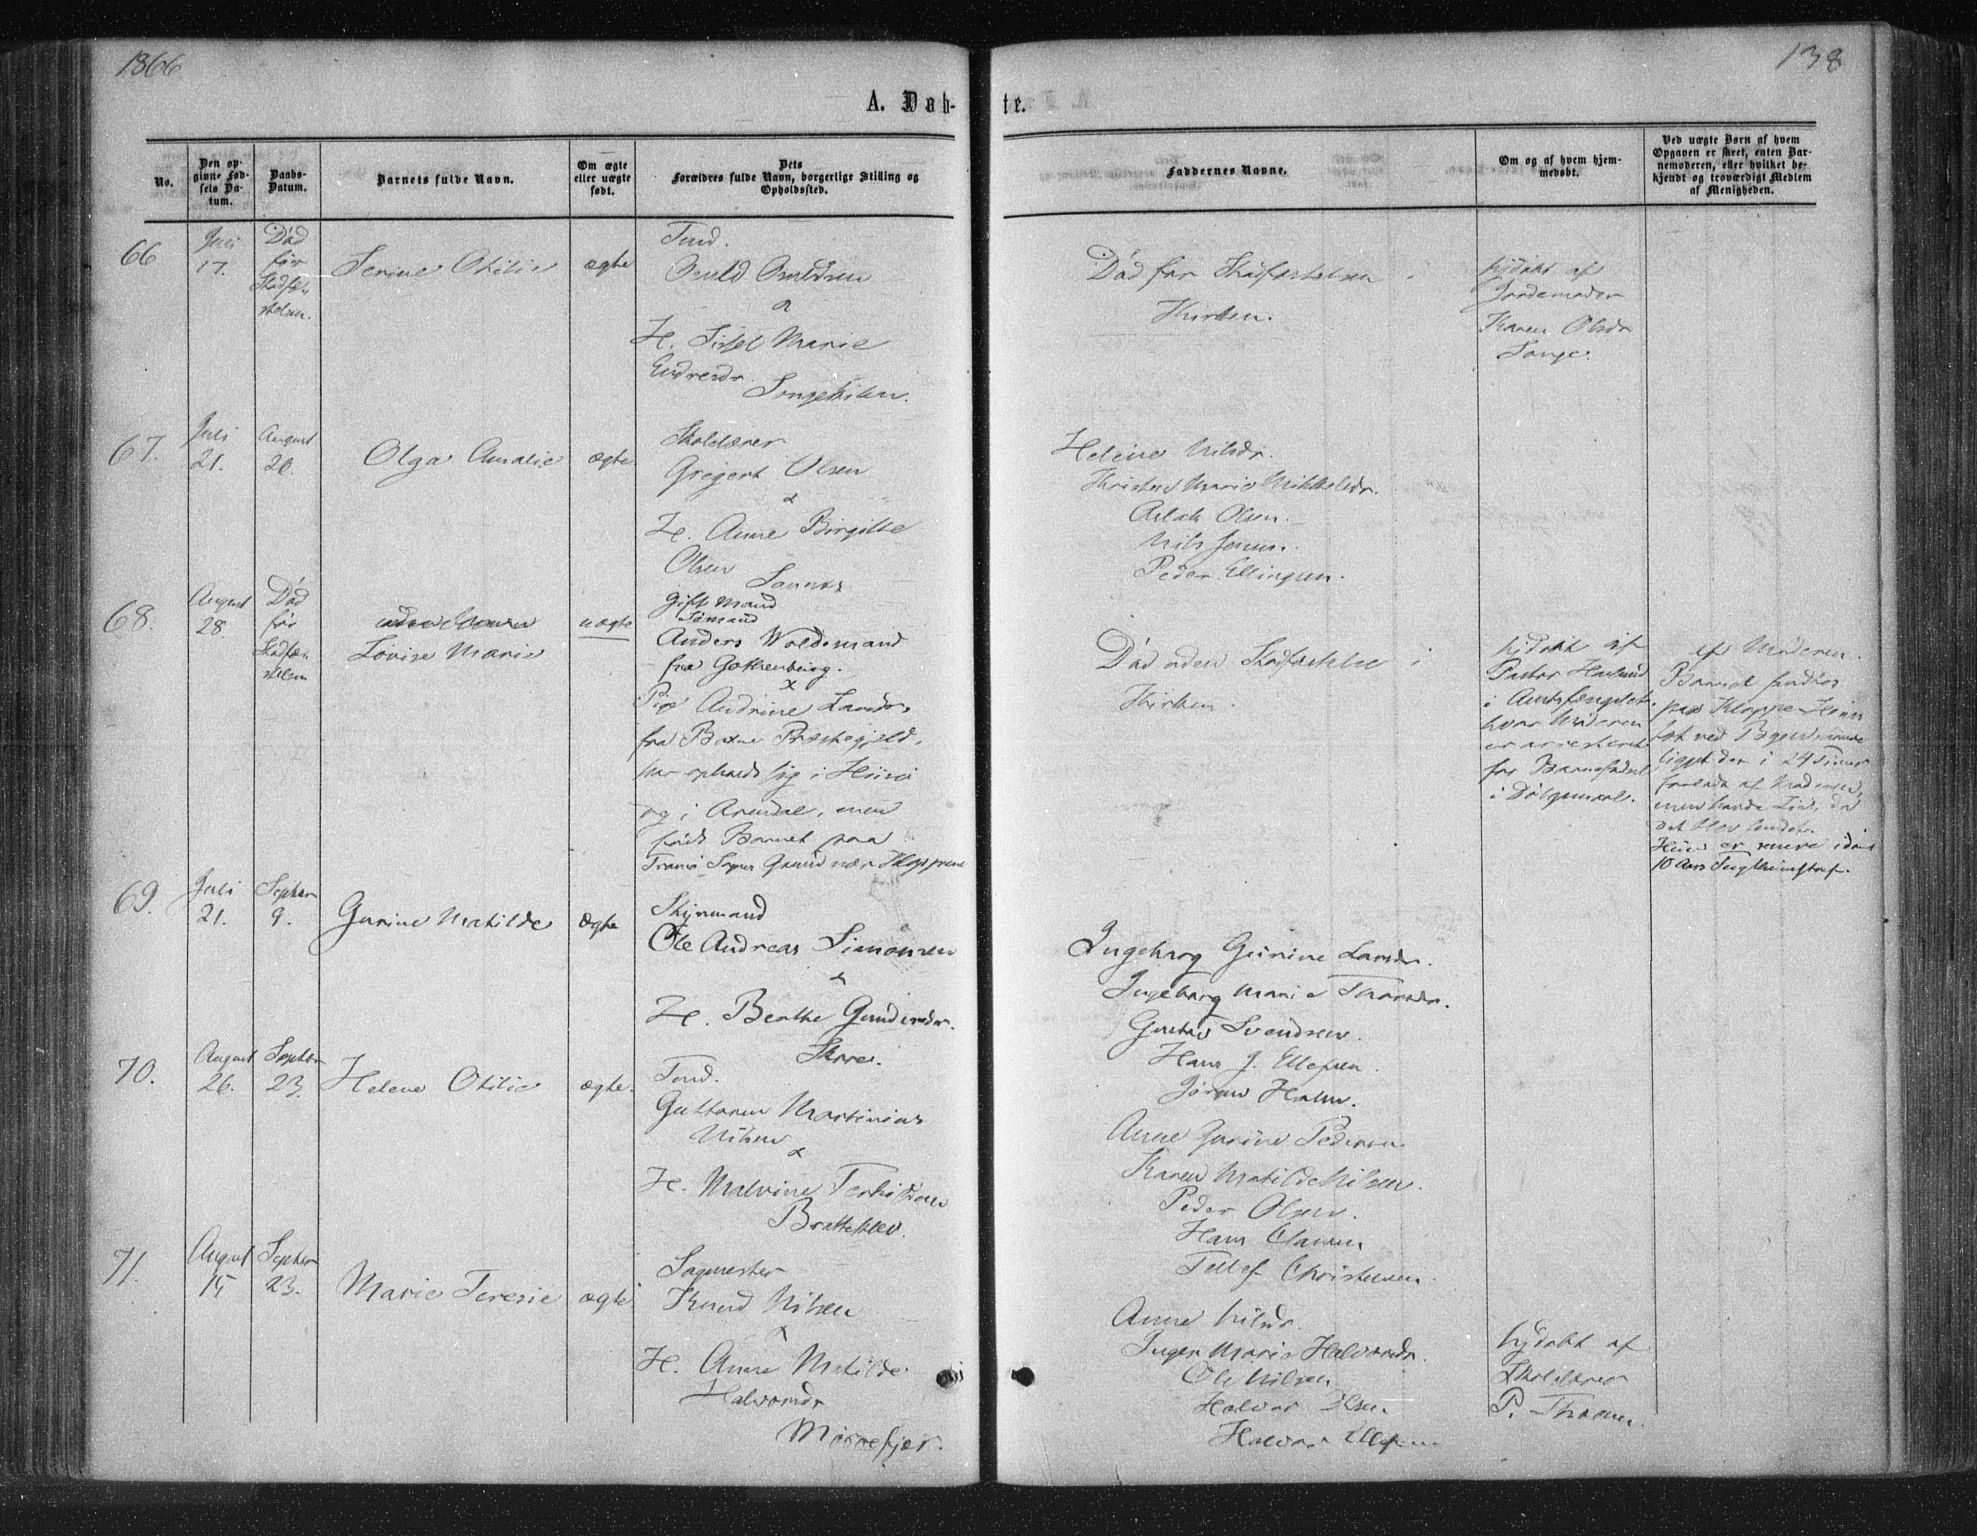 1866
138
A. Døb-
te.
No.
Den op-
givne Fød-
sels Da-
tum.
Daabs-
Datum.
Barnets fulde Navn.
Om ægte
eller uægte
født.
Dets
Forældres fulde Navn, borgerlige Stilling og
Opholdssted.
Faddernes Navne.
Om og af hvem hjem-
medøbt.
Ved uægte Børn af hvem
Opgaven er skeet, enten Bar-
nemoderen, eller hvilket be-
kjendt og troværdigt Medlem
af Menigheden.
66
Juli
17.
Død
før
Stadfæ-
stelsen.
Serine Otilie
ægte
H. Sissel Marie
Endresdr.
Songekilen.
Død før Stadfæstelsen i
Kirken.
hjdøbt af
Jordemoder
Karen Olsdr
Songe.
67.
Juli
21.
August
26.
Olga Amalie
ægte
Skolelærer
Gregert Olsen
x
H. Anne Birgitte
Olsen
Helene Nilsdr.
Kristen Marie Mikkelsdr.
Aslak Olsen.
Nils Jensen.
Peder Ellingsen.
68.
August
28.
Død
før
Stadfæ-
stelsen
Lovise Marie
uægte
gift Mand
Sømand
Anders Woldemand
fra Gothenburg.
x
Pige Andrine Larsdr.
fra Præstegjeld,
har opholdt sig i
og i Arendal, men
født Barnet paa
Tromø Sogns Grund nær Kloppene
Død uden Stadfæstelse i
Kirken.
hjdøbt af
Pastor
i Amtsfengslet,
hvor Moderen
er arresteret
for Barnefødsel
i Dølgsmaal.
af Moderen.
Barnet fandtes
paa
ligget der i 24 Timer
forladt af Moderen,
men havde Liv, da
det blev fundet.
Hun er senere idømt
10 Aars Tugthuusstraf.
69.
Juli
21.
Septbr
9.
Gunine Matilde
ægte
Styrmand
Ole Andreas Simonsen
x
H. Berthe Gundersdr.
Ingeborg Gunine Larsdr.
Ingeborg Marie
Gustav Svendsen.
Hans J. Ellefsen.
Jørgen Holm.
70.
August
26.
Septbr
23.
Helene Otilie
ægte.
Guttorm Martinius
Nilsen
x
H. Malvine Terkildsen
Bratteklev.
Anne Gurine Pedersen
Karen Matilde Nilsen.
Peder Olsen.
Hans Clausen
Tellef Christensen.
71.
August
15
Septbr
23.
Marie Teresie
ægte
Sagmester
Knud Nilsen
x
H. Anne Matilde
Halvorsdr
Mørefjær.
Anne Nilsdr.
Inger Marie Halvorsdr.
Ole Nilsen
Halvor Olsen
Halvor Ellefsen
hjdøbt af
Skolelærer
P. Thorsen.